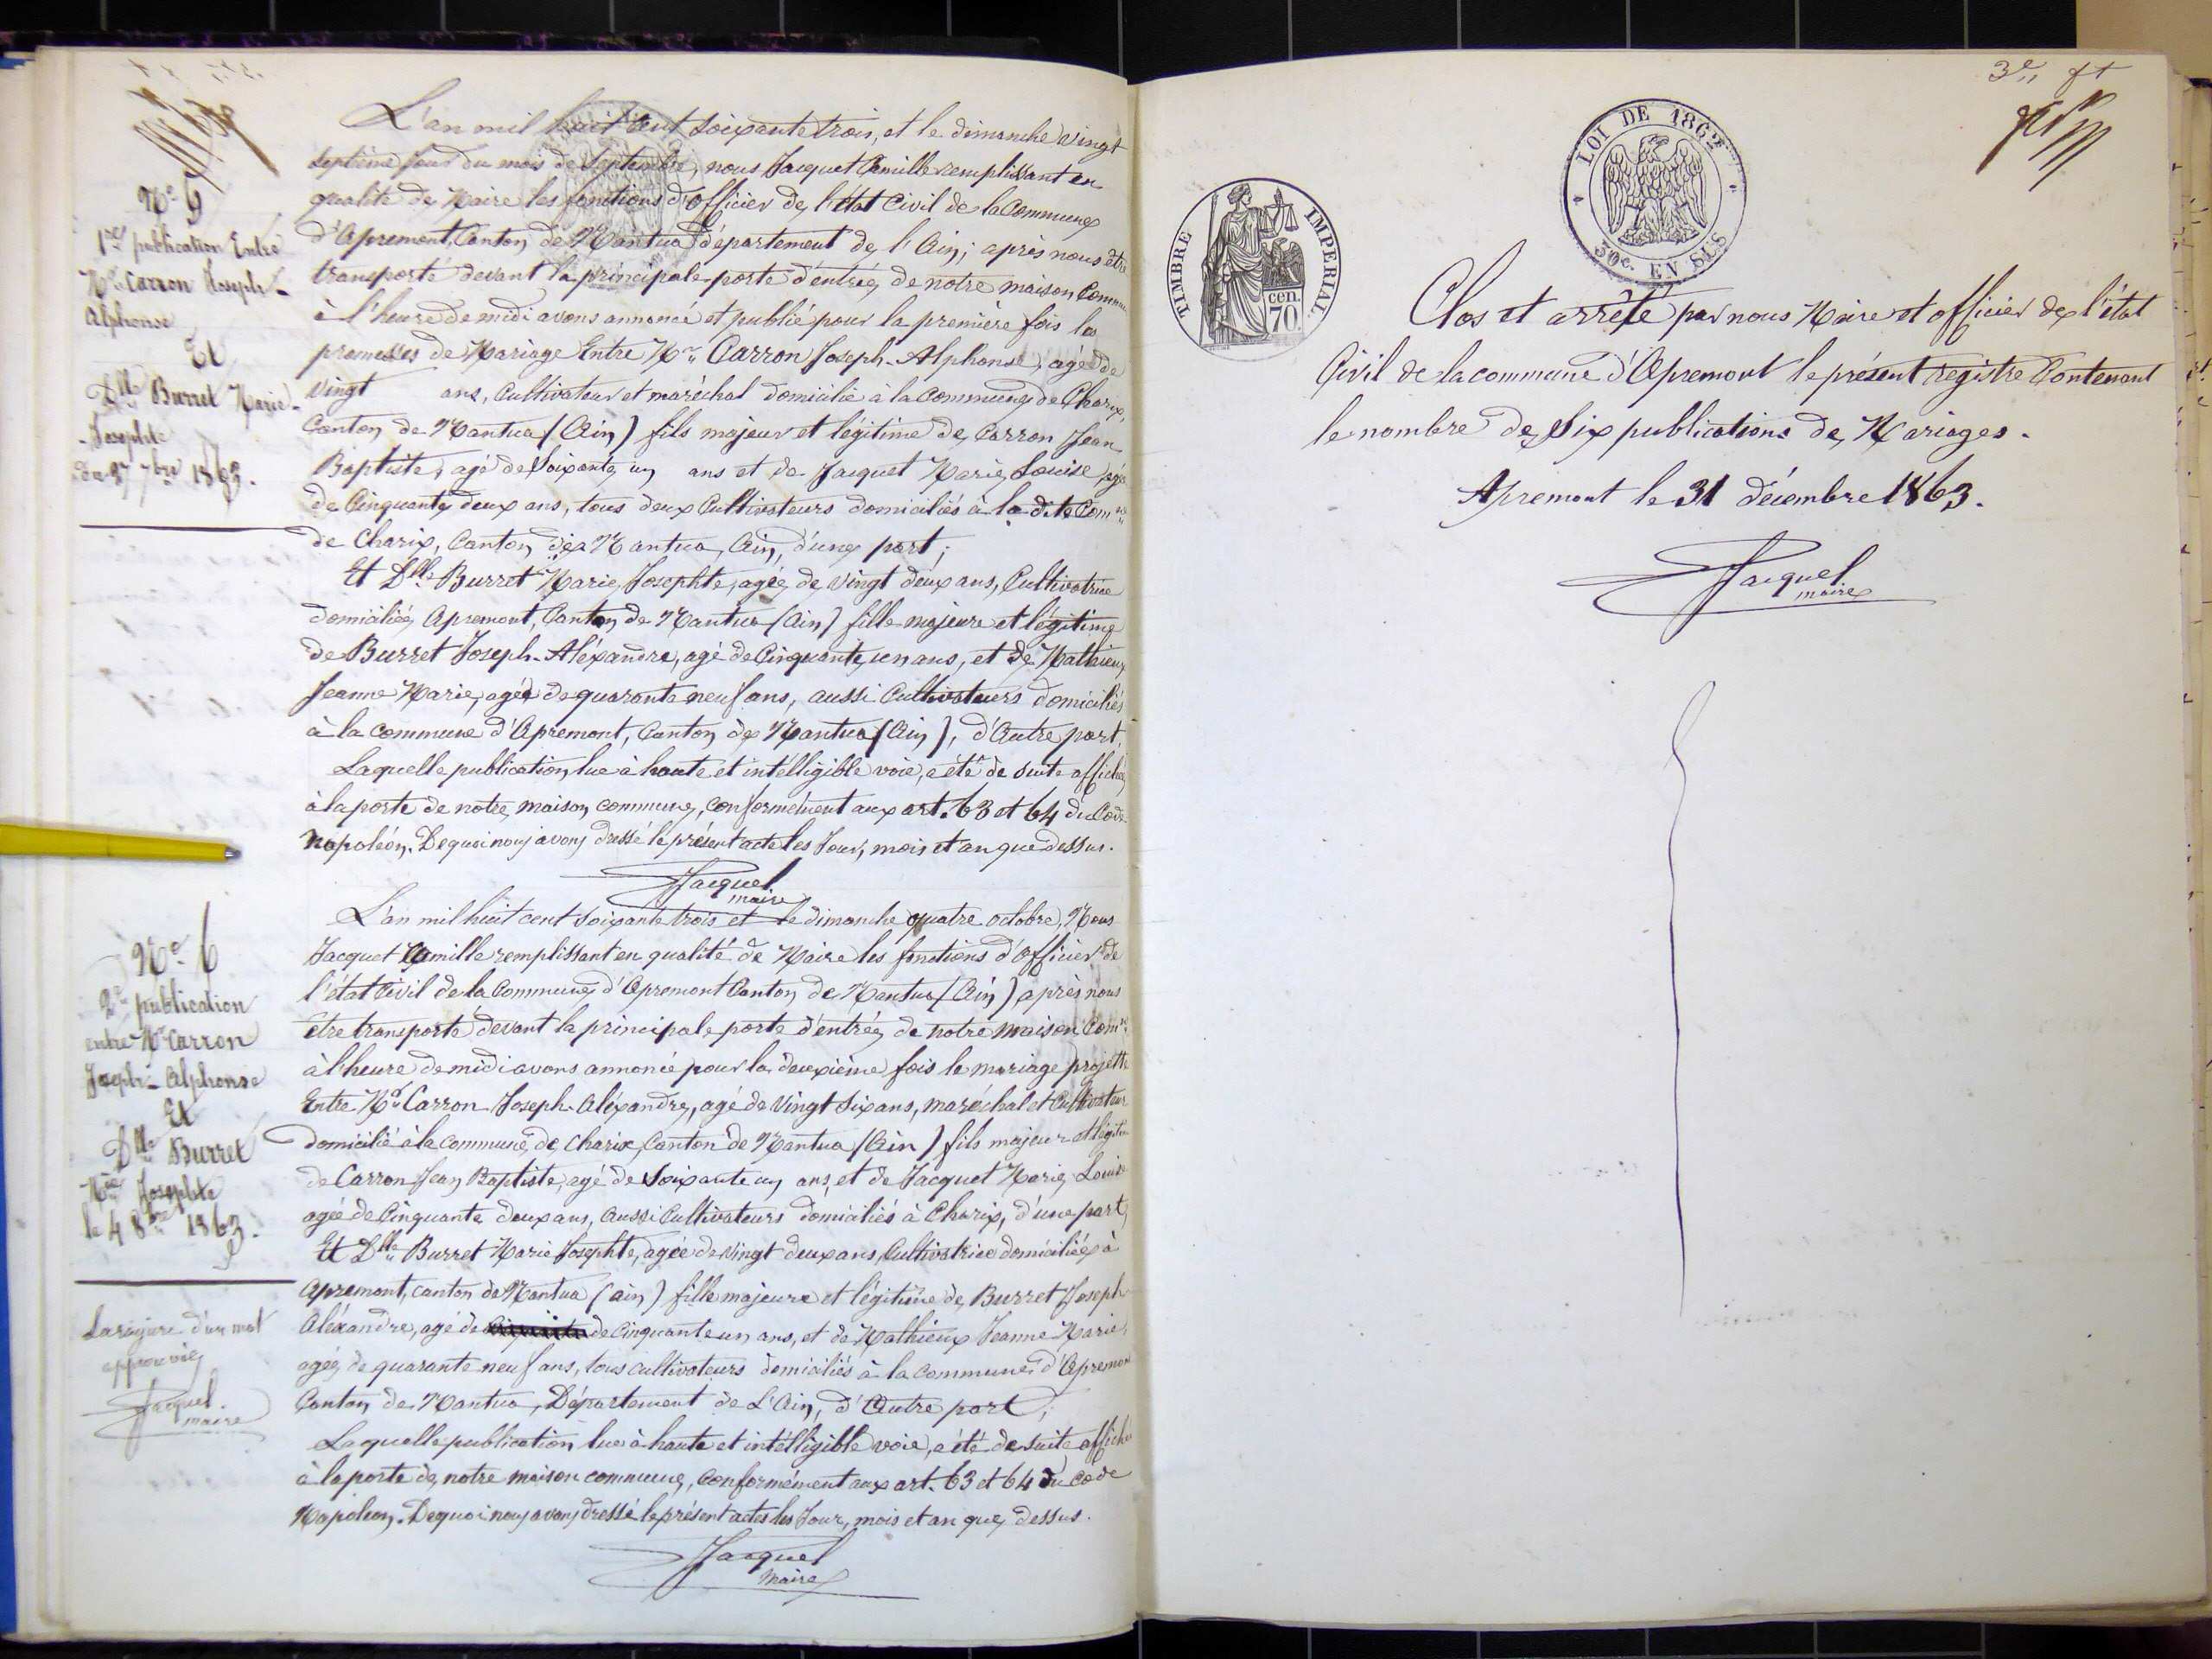 N° 5
1re publication Entre
Mr Carron Joseph-
Alphonse
Et
Dlle Burret Marie-
Josephte
du 27 7bre 1863.
L'an mil huit cent soixante trois, et le dimanche vingt
septième jour du mois de Septembre, nous Jacquet Camille remplissant en
qualité de Maire les fonctions d'officier de l'état Civil de la Commune
d'Apremont, Canton de Mantua département de l'Ain; après nous être
transporté devant la principale porte d'entrée, de notre maison Commune
à l'heure de midi avons annoncé et publié pour la première fois les
promesses de Mariage Entre Mr Carron Joseph-Alphonse, agé de
vingt ans, Cultivateur et maréchal domicilié à la Commune de Charix,
Canton de Mantua (Ain) fils majeur et légitime de Carron Jean
Baptiste, agé de Soixante un ans et de Jacquet Marie Louise agée
de Cinquante deux ans, tous deux Cultivateurs domiciliés à la dite Comne
de Charix, Canton de Mantua, Ain, d'une part;
Et Dlle Burret Marie Josephte, agée de vingt deux ans, Cultivatrice
domiciliée Apremont, Canton de Mantua (Ain) fille majeure et légitime
de Burret Joseph-Aléxandre, agé de Cinquante un ans, et de Mathieux
Jeanne Marie, agée de quarante neuf ans, aussi Cultivateurs domiciliés
à la commune d'Apremont, Canton de Mantua (Ain), d'Autre part.
Laquelle publication, lue à haute et intélligible voie, a été de suite affichée
à la porte de notre maison commune, conformément aux art. 63 et 64 du Code
Napoléon. De quoi nous avons dressé le présent acte les Jour, mois et an que dessus.
Jacquet
maire
N° 6
2e publication
entre Mr Carron
Joseph-Alphonse
Et
Dlle Burret
Mie Josephte
le 4 8bre 1863.
L'an mil huit cent soixante trois et le dimanche quatre octobre, Nous
Jacquet Camille remplissant en qualité de Maire les fonctions d'officier de
l'état Civil de la Commune d'Apremont Canton de Mantua (Ain) après nous
être transporté devant la principale porte d'entrée de notre maison Comne
à l'heure de midi avons annoncé pour la deuxième fois le mariage projetté
Entre Mr Carron Joseph-Aléxandre, agé de vingt Six ans, maréchal et Cultivateur
domicilié à la commune de Charix, Canton de Mantua (Ain) fils majeur et légitime
de Carron Jean Baptiste, agé de Soixante un ans, et de Jacquet Marie, Louise
agée de Cinquante deux ans, aussi Cultivateurs domiciliés à Charix, d'une part,
Et Dlle Burret Marie Josephte, agée de vingt deux ans, Cultivatrice domiciliée à
Apremont, canton de Mantua (ain) fille majeure et légitime de Burret Joseph
Aléxandre, agé de de Cinquante un ans, et de Mathieux Jeanne Marie,
agée de quarante neuf ans, tous cultivateurs domiciliés à la commune d'Apremont
Canton de Mantua, Département de L'Ain, d'Autre part;
Laquelle publication lue à haute et intélligible voie, a été de suite affichée
à la porte de notre maison commune, Conformément aux art. 63 et 64 du Code
Napoléon. De quoi nous avons dressé le présent actes les Jour, mois et an que dessus.
Jacquet
Maire
La rayure d'un mot
approuvée
Jacquet
maire
LOI DE 1862
50c. EN SUS
TIMBRE IMPERIAL
70 cen.
Clos et arrêté par nous Maire et officier de l'état
Civil de la commune d'Apremont le présent registre Contenant
le nombre de Six publications de Mariages.
Apremont le 31 décembre 1863.
Jacquet
maire